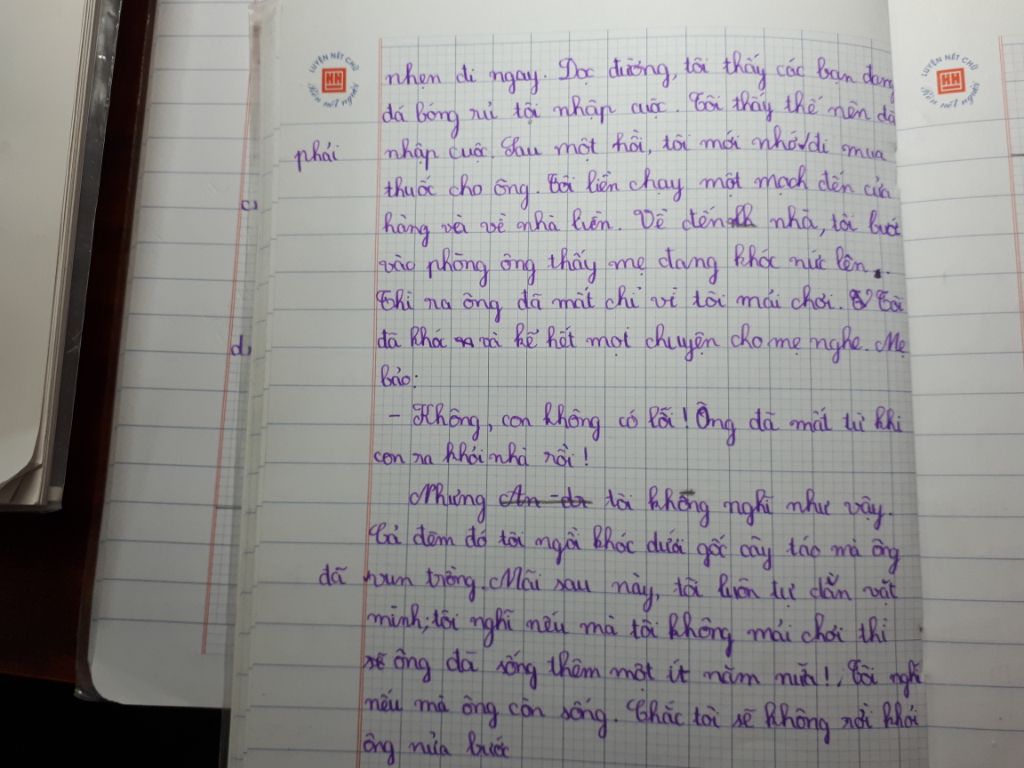 LUYỆN NÉT CHỮ
HH
Rèn nết người
LUYỆN NẾT CHỮ
HH
Rèn nết người
nhẹn đi ngay. Dọc đường, tôi thấy các bạn đang
đá bóng rủ tội nhập cuộc. Tôi thấy thế nên đã
phải
nhập cuộc. Sau một hồi, tôi mới nhớ√đi mua
thuốc cho ông. Tôi liền chạy một mạch đến cửa
c,
hàng và về nhà liền. Về đến nhà, tôi bước
vào phòng ông thấy mẹ đang khóc nức lên.
Thì ra ông đã mất chỉ vì tôi mải chơi. Tôi
d,
đã khóc và kể hết mọt chuyện cho mẹ nghe. Mẹ
bảo:
- Không, con không có lỗi! Ông đã mất từ khi
con ra khỏi nhà rồi!
Nhưng An-đr tôi không nghĩ như vậy.
Cả đêm đó tôi ngồi khóc dưới gốc cây táo mà ông
đã
vun trồng. Mãi sau này, tôi luôn tự dằn vặt
mình; tôi nghĩ nếu mà tôi không mải chơi thì
sẽ ông đã sống thêm một ít năm nữa!, Tôi nghĩ
nếu mà ông còn sống. Chắc tôi sẽ không rời khỏi
ông nửa bước